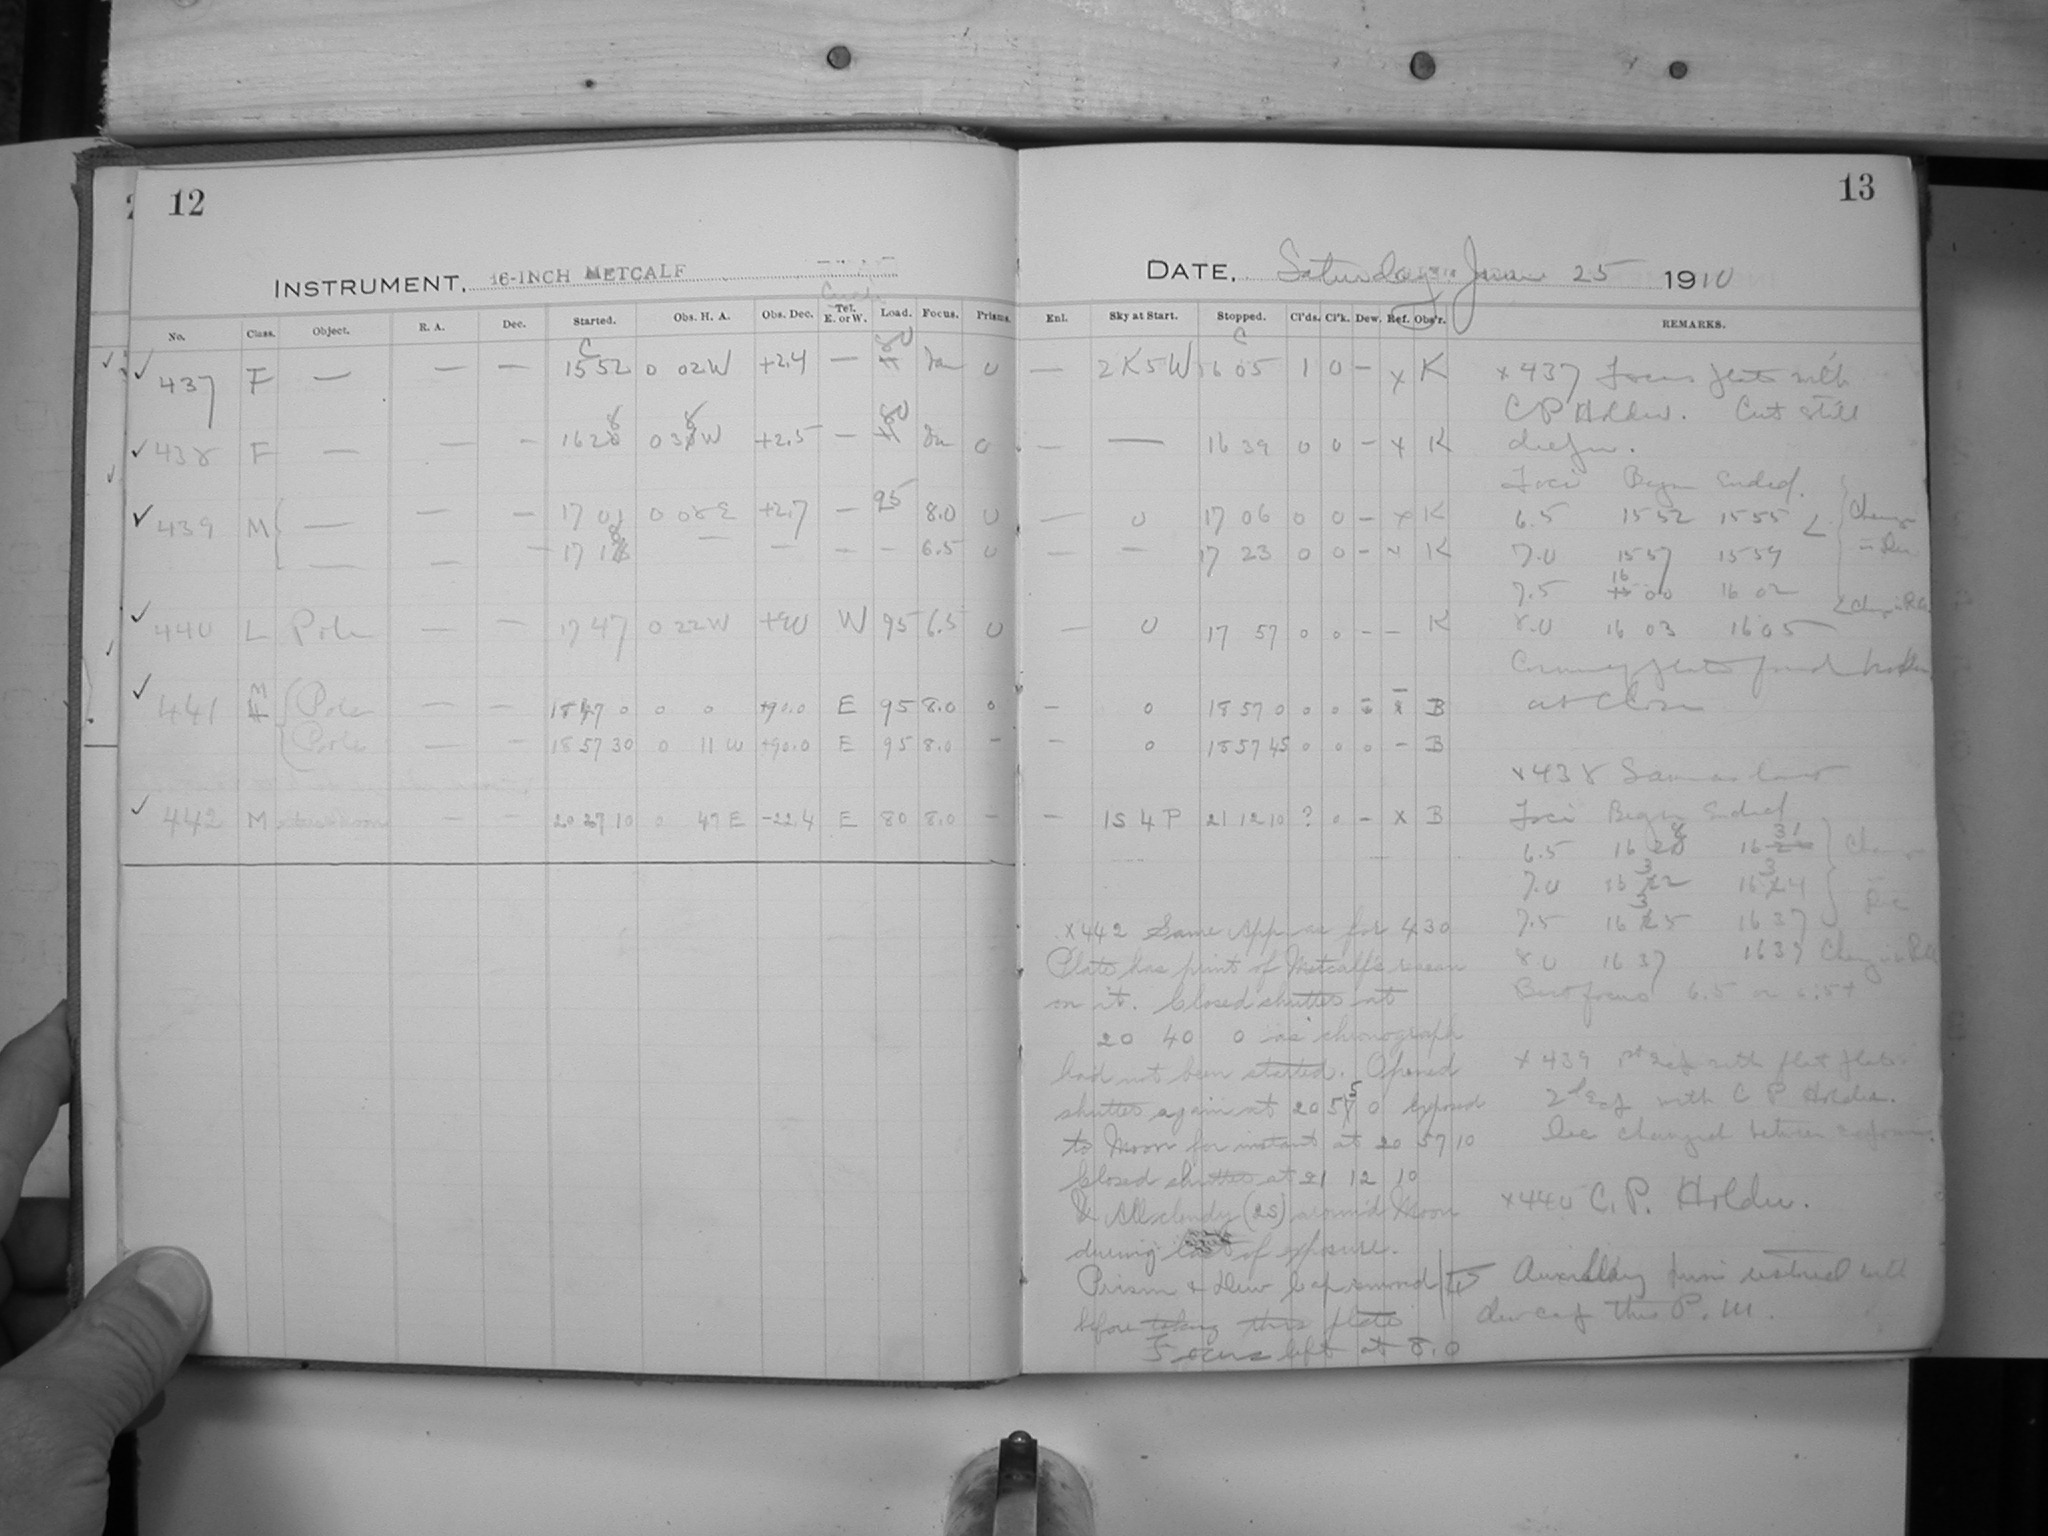 12
INSTRUMENT, 16-INCH METCALF
No. Class. Object. R. A. Dec. Started. Obs. H. A. Obs. Dec. Tel. E. or W. Load. Focus. Prisms.
437 F — — — 15 52 0 02 W +2.4 — 80
438 F — — — 16 28 0 38 W +2.5 — 80
439 M — — — 17 01 0 08 E +2.7 — 95 8.0 0
— — — 17 18 — — — — 6.5 0
440 L Pole — — 17 47 0 22 W +90 W 95 6.5 0
441 M Pole — — 18 47 0 0 0 +90.0 E 95 8.0 0
Pole — — 18 57 30 0 11 W +90.0 E 95 8.0 —
442 M — — 20 37 10 0 47 E -22.4 E 80 8.0 —
13
DATE, Saturday June 25 1910
Enl. Sky at Start. Stopped. Cl'ds. Cl'k. Dew. Ref. Obs'r. REMARKS.
— 2 K 5 W 16 05 1 0 — x K
— — 16 39 0 0 — x K
— 0 17 06 0 0 — x K
— — 17 23 0 0 — x K
— 0 17 57 0 0 — — K
— 0 18 57 0 0 0 B
— 0 18 57 45 0 0 0 — B
— 1S 4 P 21 12 10 ? 0 — x B
x442 Same App as for 430
Plate has print of Metcalf's
on it. Closed shutter at
20 40 0 as chronograph
had not been started. Opened
shutter again at 20 55 0 exposed
to Moon for instant at 20 57 10
Closed shutter at 21 12 10
& All cloudy (2S) around Moon
during last of exposure.
Prism & Dew Cap removed
before taking this plate
Focus left at 8.0
x437 Focus plate with
C P Holder. Cut still
deeper.
Foci Began Ended.
6.5 15 52 15 55 Change in Dec
7.0 15 57 15 59
7.5 16 00 16 02
8.0 16 03 16 05
plate found broken
at Close
x438 Same as last
Foci Began Ended
6.5 16 28 16 31 Change in Dec
7.0 16 32 16 34
7.5 16 35 16 37
8.0 16 37 16 39
Best focus 6.5 or 6.5+
x439 1st Exp with flat plate.
2d Exp with C P Holder.
Dec changed between exposures.
x440 C. P. Holder.
Auxiliary prism with
dew cap this P. M.